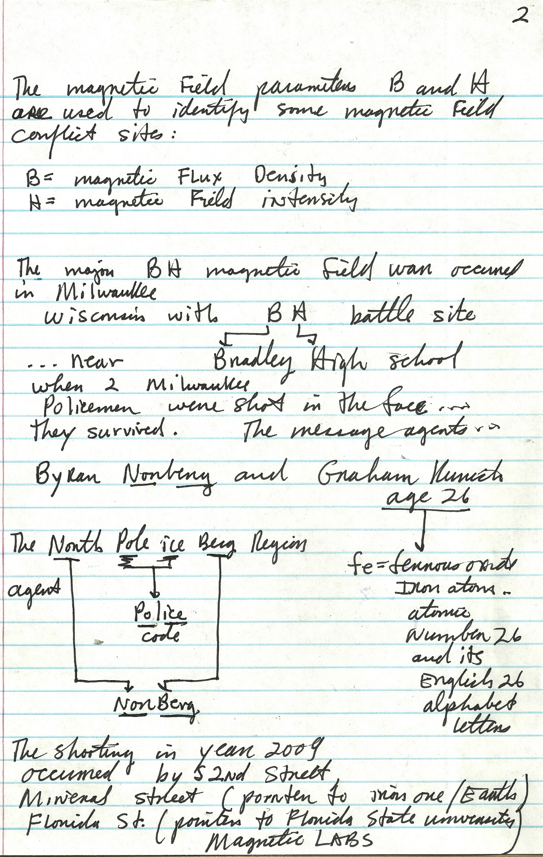 2
The magnetic Field parameters B and H
are used to identify some magnetic Field
conflict sites:
B = magnetic Flux Density
H = magnetic Field intensity
The major BH magnetic Field war occured
in Milwaukee
Wisconsin with BH battle site
... near Bradley High school
when 2 Milwaukee
Policemen were shot in the face ....
they survived. The message agents...
Byran Norberg and Graham Kunisch
age 26
The North Pole ice Berg Region
fe = ferrous oxide
agent
Iron atom..
Police
atomic
code
Number 26
and its
English 26
NorBerg
alphabet
letters
The shooting in year 2009
occurred by 52nd Street
Mineral street (pointer to iron ore / Earth)
Florida St. (pointer to Florida State university
Magnetic LABS